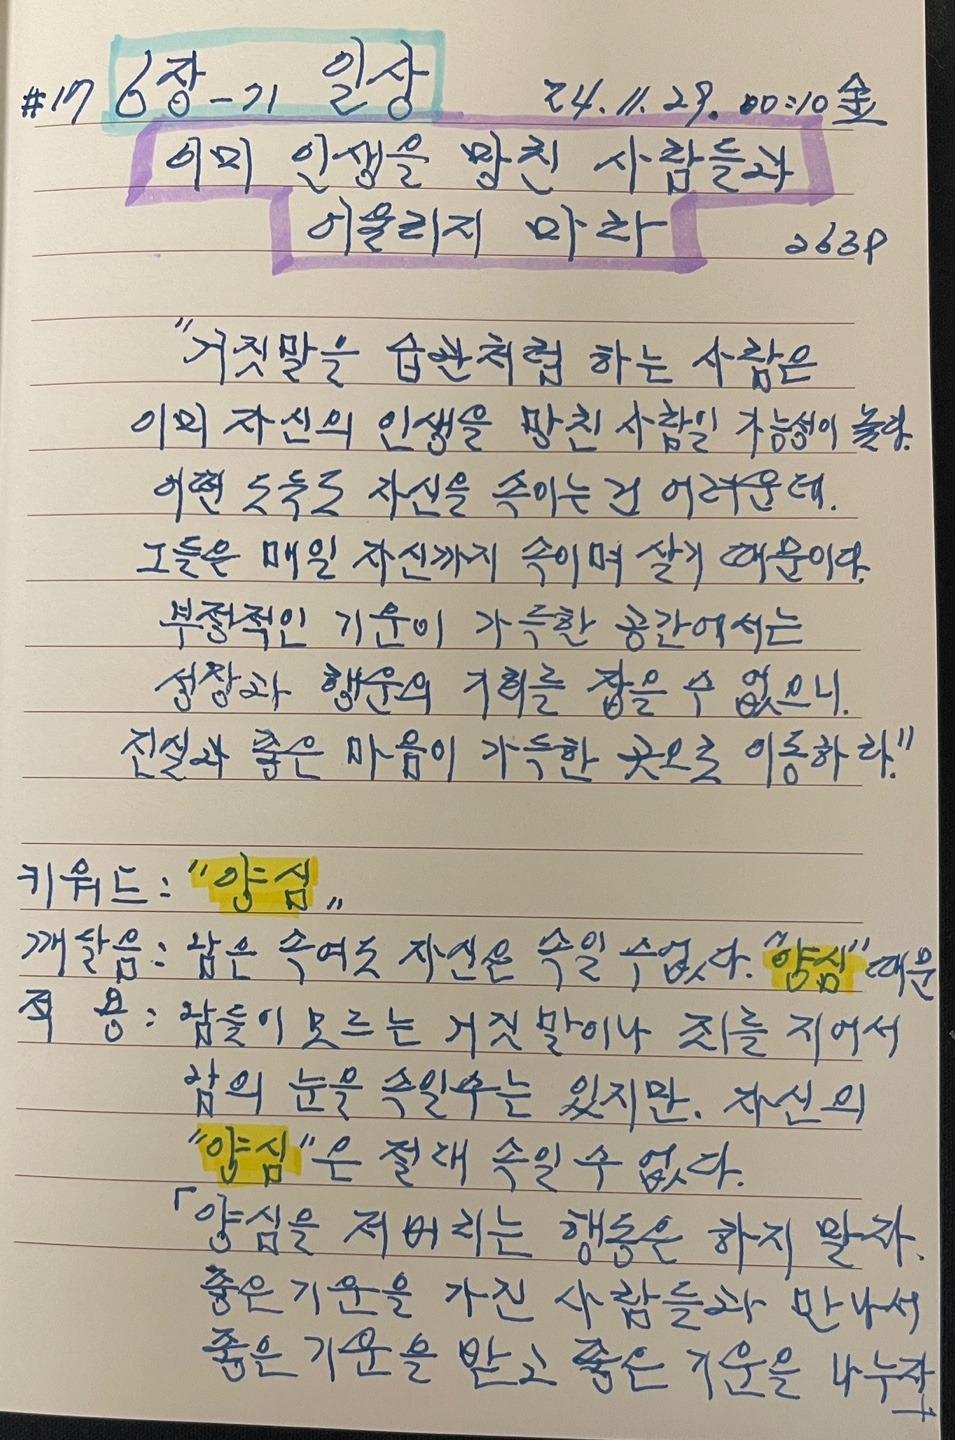 #17 6장-기 일상 24.11.29. 00:10 金
이미 인생을 망친 사람들과
어울리지 마라 263P
"거짓말을 습관처럼 하는 사람은
이미 자신의 인생을 망친 사람일 가능성이 높다.
어떤 도둑도 자신을 속이는 건 어려운데.
그들은 매일 자신까지 속이며 살기 때문이다.
부정적인 기운이 가득한 공간에서는
성장과 행운의 기회를 잡을 수 없으니.
진실과 좋은 마음이 가득한 곳으로 이동하라."
키워드: "양심"
깨달음: 남은 속여도 자신은 속일 수 없다. "양심" 때문
적 용: 남들이 모르는 거짓말이나 죄를 지어서
남의 눈을 속일수는 있지만. 자신의
"양심"은 절대 속일 수 없다.
「양심을 저버리는 행동은 하지 말자.
좋은 기운을 가진 사람들과 만나서
좋은 기운을 받고 좋은 기운을 나누자